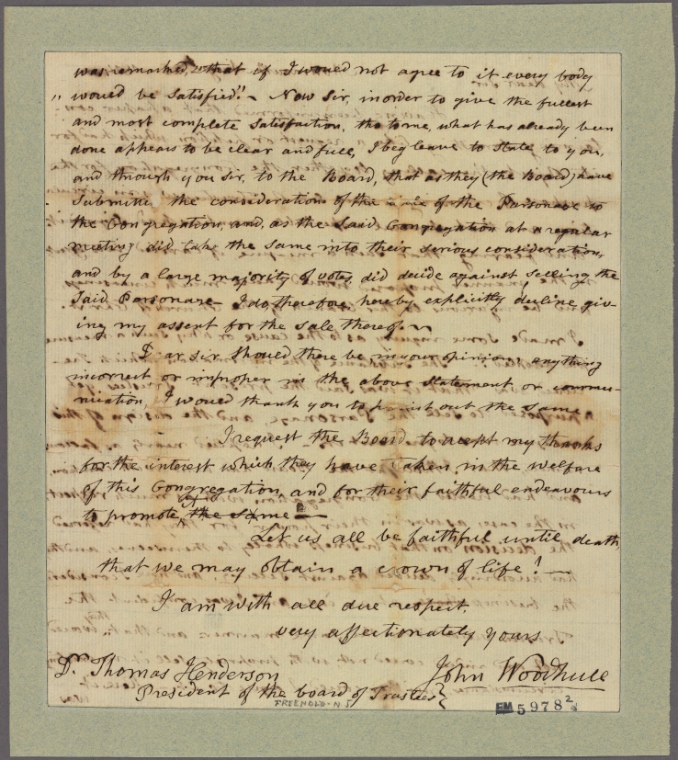 was remarked, "that if I would not agree to it every body
" would be satisfied". Now Sir, in order to give the fullest
and most complete satisfaction, tho to me, what has already been
done appears to be clear and full, I beg leave to state to you,
and through you Sir, to the Board, that as they (the Board) have
submitted the consideration of the sale of the Parsonage to
the Congregation, and, as the said Congregation at a regular
meeting did take the same into their serious consideration,
and by a large majority of votes, did decide against selling the
said Parsonage – I do therefore, hereby explicitly decline giv-
ing my assent for the sale thereof. –
Dear Sir should there be in your opinion, anything
incorrect or improper in the above statement or commu-
nication, I would thank you to point out the same
I request the Board to accept my thanks
for the interest which they have taken in the welfare
of this Congregation, and for their faithful endeavours
to promote the same –
Let us all be faithful until death,
that we may obtain a crown of life! –
I am with all due respect.
very affectionately yours
Dr. Thomas Henderson John Woodhull
President of the board of Trustees}
FREEHOLD - N J
EM 5978 2